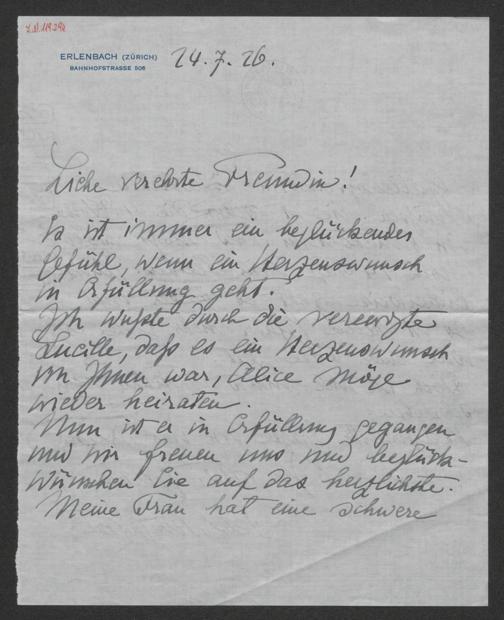 I.N. 119.294
ERLENBACH (ZÜRICH)
BAHNHOFSTRASSE 506
24.7.26.
Liebe verehrte Freundin!
Es ist immer ein beglückendes
Gefühl, wenn ein Herzenswunsch
in Erfüllung geht.
Ich wußte durch die verewigte
Lucille, daß es ein Herzenswunsch
von Ihnen war, Alice möge
wieder heiraten.
Nun ist er in Erfüllung gegangen
und wir freuen uns und beglück-
wünschen Sie auf das herzlichste.
Meine Frau hat eine schwere